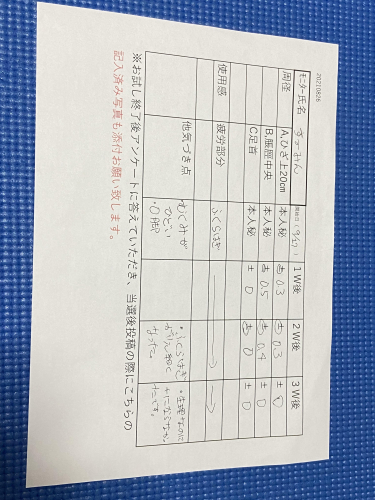 20210826
モニター氏名 すつーみん
開始日(9/1) 1W後 2W後 3W後
周径 A.ひざ上20cm 本人秘 ± 0.3 ± 0.3 ± 0
B.脹脛中央 本人秘 ± 0.5 ± 0.4 ± 0
C.足首 本人秘 ± 0 ± 0 ± 0
使用感 疲労部分 ふくらはぎ
他気づき点 むくみが
ひどい
・ふくらはぎ
なった
・生理なのに
※お試し終了後アンケートに答えていただき、当選後投稿の際にこちらの
記入済み写真も添付お願い致します。